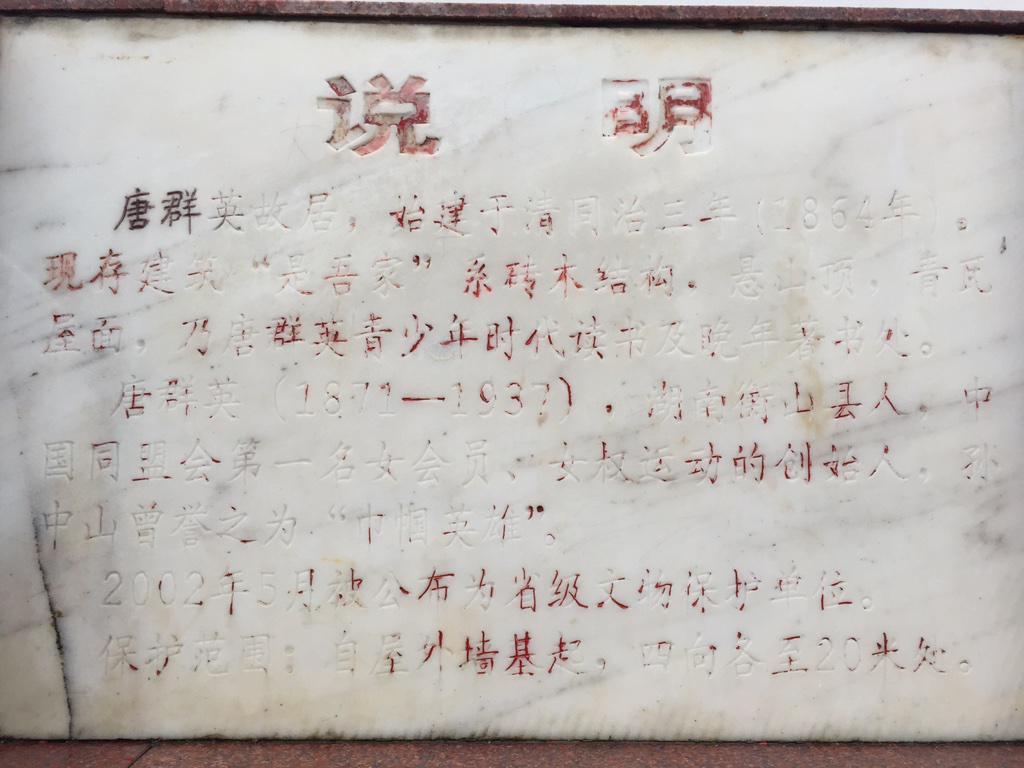 说 明
唐群英故居，始建于清同治三年(1864年)。
现存建筑“是吾家”系砖木结构。悬山顶，青瓦
屋面，乃唐群英青少年时代读书及晚年著书处。
唐群英(1871—1937)，湖南衡山县人，中
国同盟会第一名女会员、女权运动的创始人，孙
中山曾誉之为“巾帼英雄”。
2002年5月被公布为省级文物保护单位。
保护范围：自屋外墙基起，四向各至20米处。